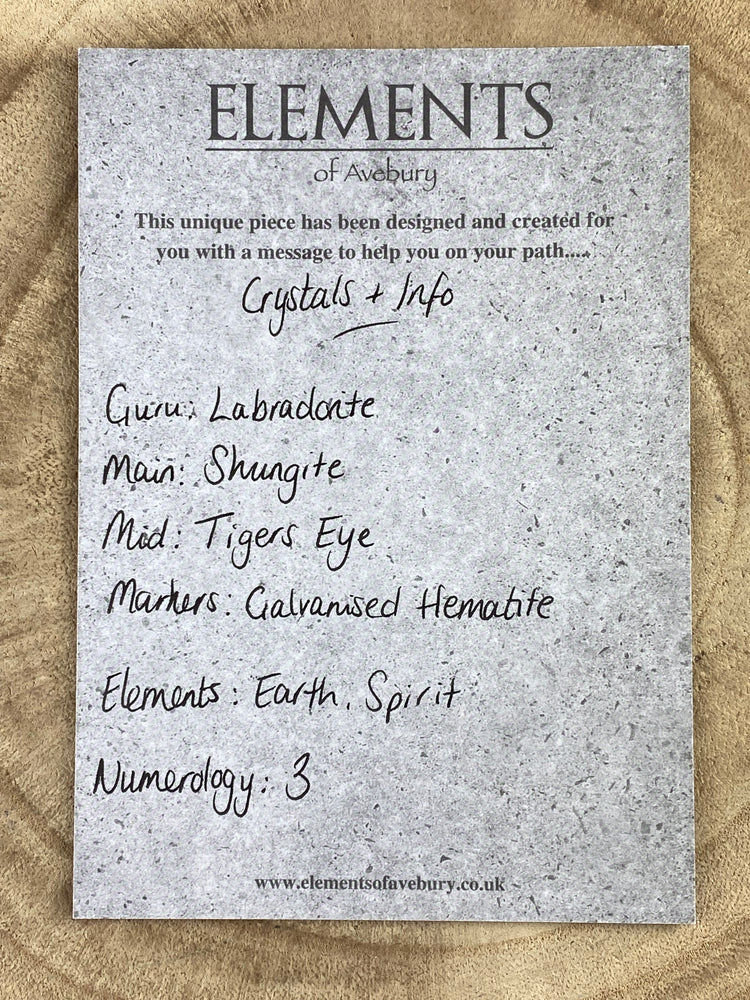 ELEMENTS
of Avebury
This unique piece has been designed and created for
you with a message to help you on your path....
Crystals + Info
Guru: Labradorite
Main: Shungite
Mid: Tigers Eye
Markers: Galvanised Hematite
Elements: Earth, Spirit
Numerology: 3
www.elementsofavebury.co.uk